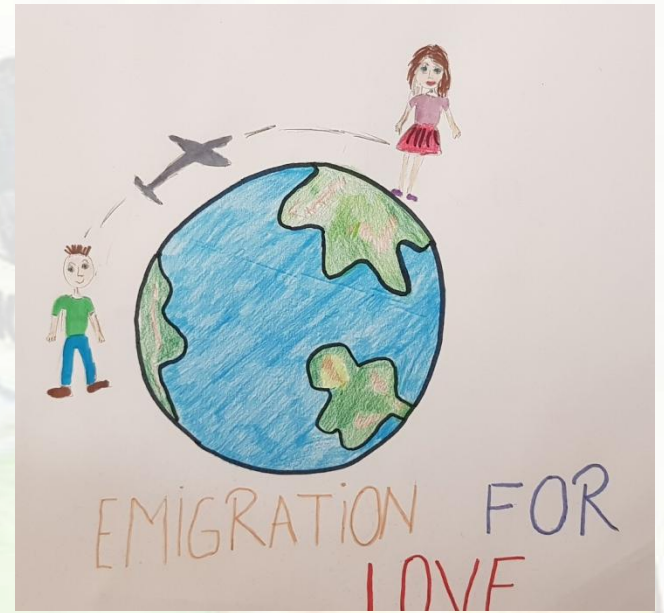 EMiGRATiON FOR
LOVE